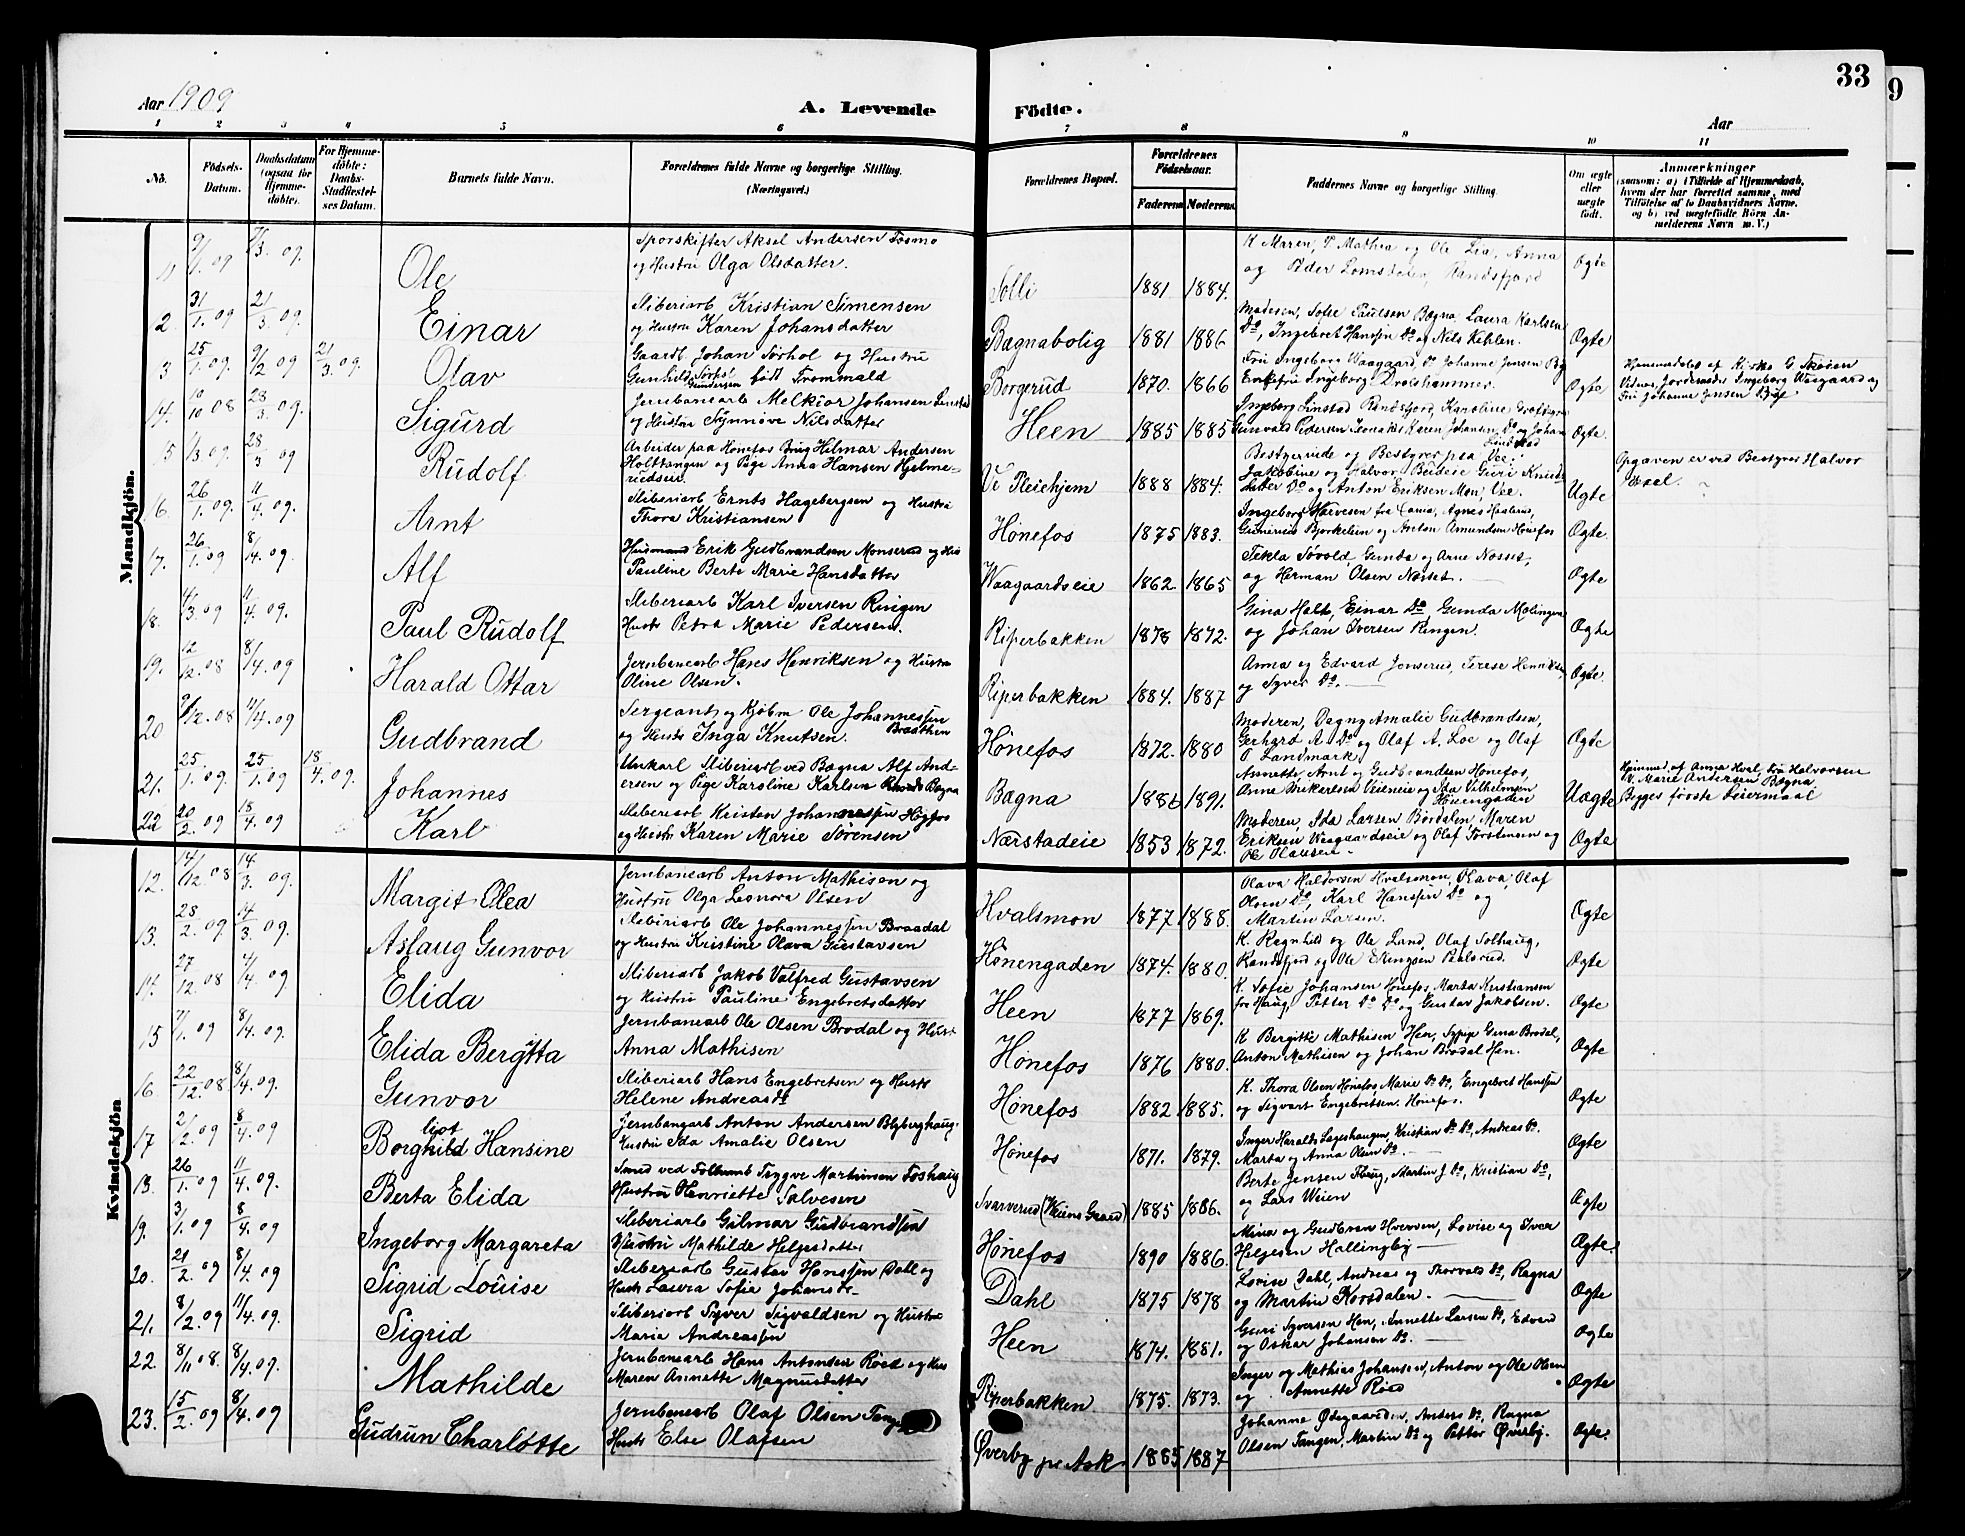 Aar 1909
A. Levende
Födte.
33
9
Aar
1 2 3 4 5 6 7 8 9 10 11
No.
Födsels-Datum.
Daabsdatum (ogsaa for Hjemmedöbte).
For Hjemmedöbte: Daabs-Stadfæstelses Datum.
Barnets fulde Navn.
Forældrenes fulde Navne og borgerlige Stilling. (Næringsvei.)
Forældrenes Bopæl.
Forældrenes Födselsaar.
Faderens Moderens
Faddernes Navne og borgerlige Stilling.
Om ægte eller uægte födt.
Anmærkninger
(saasom: a) i Tilfælde af Hjemmedaab, hvem der har forrettet samme, med Tilföielse af to Daabsvidners Navne, og b) ved uægtefödte Börn Anmelderens Navn m. V.)
Mandkjön.
11 9/1. 09 7/3. 09. Ole
Sporskifter Aksel Andersen Tosmo
og Hustru Olga Olsdatter.
Solli 1881 1884.
K Maren, P Mathea og Ole Lia, Anna
og Peder Lomsdalen, Randsfjord
Ægte
2. 31/1. 09 21/3. 09. Einar
Sliberiarb Kristian Simensen
og Hustru Karen Johansdatter
Bægnabolig 1881 1886
Moderen, Sofie Paulsen Bægna Laura Karlsen
Do, Ingebret Hanssen Do og Nils Kihlen.
Ægte
3. 25/1. 09. 9/2 09 21/3. 09. Olav
Gaardb. Johan Sørhol og Hustru
Gunhild Gundersen født Trommald
Borgerud 1870. 1866
Fru Ingeborg Waagaard, Do Johanne Jensen Bg
Enkefru Ingeborg Droishammer.
Ægte
Hjemmedøbt af Kirkes G. Skøien
Vidner Jordemoder Ingeborg Waagaard og
Fru Johanne Jensen Bg
14. 10/10 08 28/3. 09. Sigurd
Jernbanearb Melkior Johansen Linstad
og Hustru Synnøve Nilsdatter
Heen 1885 1885
Ingeborg Linstad Randsfjord, Karoline
Gunvald Pedersen Karen Johansen Do og Johan
Linstad
Ægte.
5. 1/3 09. 28/3 09 Rudolf
Arbeider paa Hønefos Brug Hilmar Andersen
Holttangen og Pige Anna Hansen Hjelme-
rudseie.
Ve Pleiehjem 1888 1884.
Bestyrerinde og Bestyrer paa Vee.
Jakobine og Halvor, Budeie Guri Knuds-
datter Do og Anton Eriksen Moe, Vee.
Uægte
Opgaven er ved Bestyrer Halvor
16. 26/1. 09. 11/4. 09. Arnt
Sliberiarb Ernts Hagebergsen og Hustru
Thora Kristiansen
Hønefos 1875 1883.
Ingeborg Halvesen
Bjørkelien og Anton Amundsen Hønefos
Ægte.
17. 26/1 09 8/4. 09. Alf
Husmand Erik Gudbrandsen Monserud og Hus
Pauline Berte Marie Hansdatter
Waagaardseie 1862 1865
Tekla Søvold, Gunda og Arne Nosset,
og Herman Olsen Nosset.
Ægte
18. 4/3 09 11/4. 09. Paul Rudolf
Sliberiarb Karl Iversen Ringen
Hustr Petra Marie Pedersen.
Riperbakken 1878 1872.
Gina Holt, Einar Do Gunda Molingen
og Johan Iversen Ringen.
Ægte
19. 12/12. 08 8/4. 09 Harald Ottar
Jernbanearb Hans Henriksen og Hustru
Oline Olsen.
Riperbakken 1884. 1887
Anna og Edvard Jonserud, Terese Henriksen,
og Syver Do.
Ægte.
20 9/12. 08 11/4. 09 Gudbrand
Sergeant og Kjøbm Ole Johannessen
Braathen
og Hustr Inga Knutsen.
Hønefos 1872. 1880
Moderen, Dagny Amalie Gudbrandsen,
Gerhard A. Do og Olaf A. Loe og Olaf
O Landmark,
Ægte
21. 25/1. 09. 25/1. 09 18/4. 09. Johannes
Unkarl Sliberiarb ved Bægna Alf And-
ersen og Pige Karoline Karlsen Bægna
Bægna 1886 1891.
Annette, Arnt og Gudbrandsen Hønefos,
Anne Mikkelsen og Ida Vilhelmsen
Hønengaden
Uægte
Hjemmed. af Anna Hval, Fra Halvorsen
V. Marie Andersen Bægna
Begges første Leiermaal
22 20/2. 09 18/4. 09 Karl
Sliberiarb Kristen Johannessen Høgfos
og Hustr Karen Marie Sørensen
Nærstadeie 1853 1872.
Moderen, Ida Larsen Børdalen, Maren
Eriksen Waagaardseie og Olaf Torstensen og
Ole Olausen.
Ægte
Kvindekjön
12. 14/12. 08 14/3. 09. Margit Olea
Jernbanearb Anton Mathisen og
Hustru Olga Leonora Olsen
Hvalsmon 1877 1888.
Olava Haldorsen Hvalsmon, Olava, Olaf
Olsen Do, Karl Hanssen Do og
Martin Larsen.
Ægte
13. 28/2. 09 14/3. 09. Aslaug Gunvor
Sliberiarb Ole Johannessen Braadal
og Hustru Kristine Olava Gustavsen
Hønengaden 1874. 1880.
K. Regnhild og Ole Lund, Olaf Solhaug,
Randsfjord og Ole Ellingsen Palsrud.
Ægte
14. 27/12 08 4/4. 09 Elida
Sliberiarb Jakob Valfred Gustavsen
og Hustru Pauline Engebretsdatter
Heen 1877 1869.
K. Sofie Johansen Hønefos, Marta Kristiansen
fra Haug, Petter Do Do og Gustav Jakobsen.
Ægte
15 7/1. 09 8/4. 09. Elida Bergitta
Jernbanearb Ole Olsen Brodal og Hustr
Anna Mathisen
Hønefos 1876 1880.
K Bergitte Mathisen Hen, Sypige Gina Brodal,
Anton Mathisen og Johan Brodal Hen.
Ægte
16. 22/12. 08 8/4. 09. Gunvor
Sliberiarb Hans Engebretsen og Hustr
Helene Andreasd
Hønefos 1882 1885.
K. Thora Olsen Hønefos, Marie Do Do, Engebret Hanssen
og Sigvart Engebretsen Hønefos.
Ægte
17 2/2. 09 8/4. 09 Borghild Hansine
liot
Jernbangarb Anton Andersen Blybergshaug.
Hustru Ida Amalie Olsen
Hønefos 1871. 1879.
Inger Haralds Lageshaugen, Kristian Do Do, Andreas Do.
Marta og Anna Olsen Do.
Ægte
18. 26/1. 09 11/4. 09. Berta Elida
Smed ved Follum Trygve Martinsen Foshaug
Hustru Henriette Salvesen
Svarverud (Veiens Gaard) 1885 1886.
Berte Jensen Fberg, Martin J. Do, Kristian Do,
og Lars Weien
Ægte
19. 3/1. 09 8/4. 09 Ingeborg Margareta
Sliberiarb Gilmar Gudbrandsen
Hustru Mathilde Helgesdatter
Hønefos 1890 1886.
Mina og Gudbran Hvervan, Lovise og Iver
Helgesen Hallingby
Ægte.
20. 21/2. 09 8/4. 09 Sigrid Louise
Sliberiarb Gustav Hanssen Dall og
Hustr Lavra Sofie Johansd.
Dahl 1875 1878
Lovise Dahl, Andreas og Thorvald Do, Ragna
og Martin Korsdalen.
Ægte
21. 8/2. 09 11/4. 09. Sigrid
Sliberiarb Syver Sigvaldsen og Hustru
Marie Andreassen
Heen 1874. 1881.
Guri Syversen Hen, Annette Larsen Do, Edvard
og Oskar Johansen Do.
Ægte
22. 8/11 08. 8/4. 09. Mathilde
Jernbanearb Hans Antonsen Røed og Hus
Maren Annette Magnusdatter
Riperbakken 1875. 1873.
Inger og Mathias Johansen, Anton og Ole Olsen
og Annette Røed
Ægte
23. 15/2. 09 8/4. 09 Gudrun Charlotte
Jernbanearb Olaf Olsen Tange
Hustr Else Olafsen
Øverby pr Ask 1885 1887
Johanne Ødegaarden, Anders Do, Ragna
Olsen Tangen, Martin Do og Petter Øverby.
Ægte.